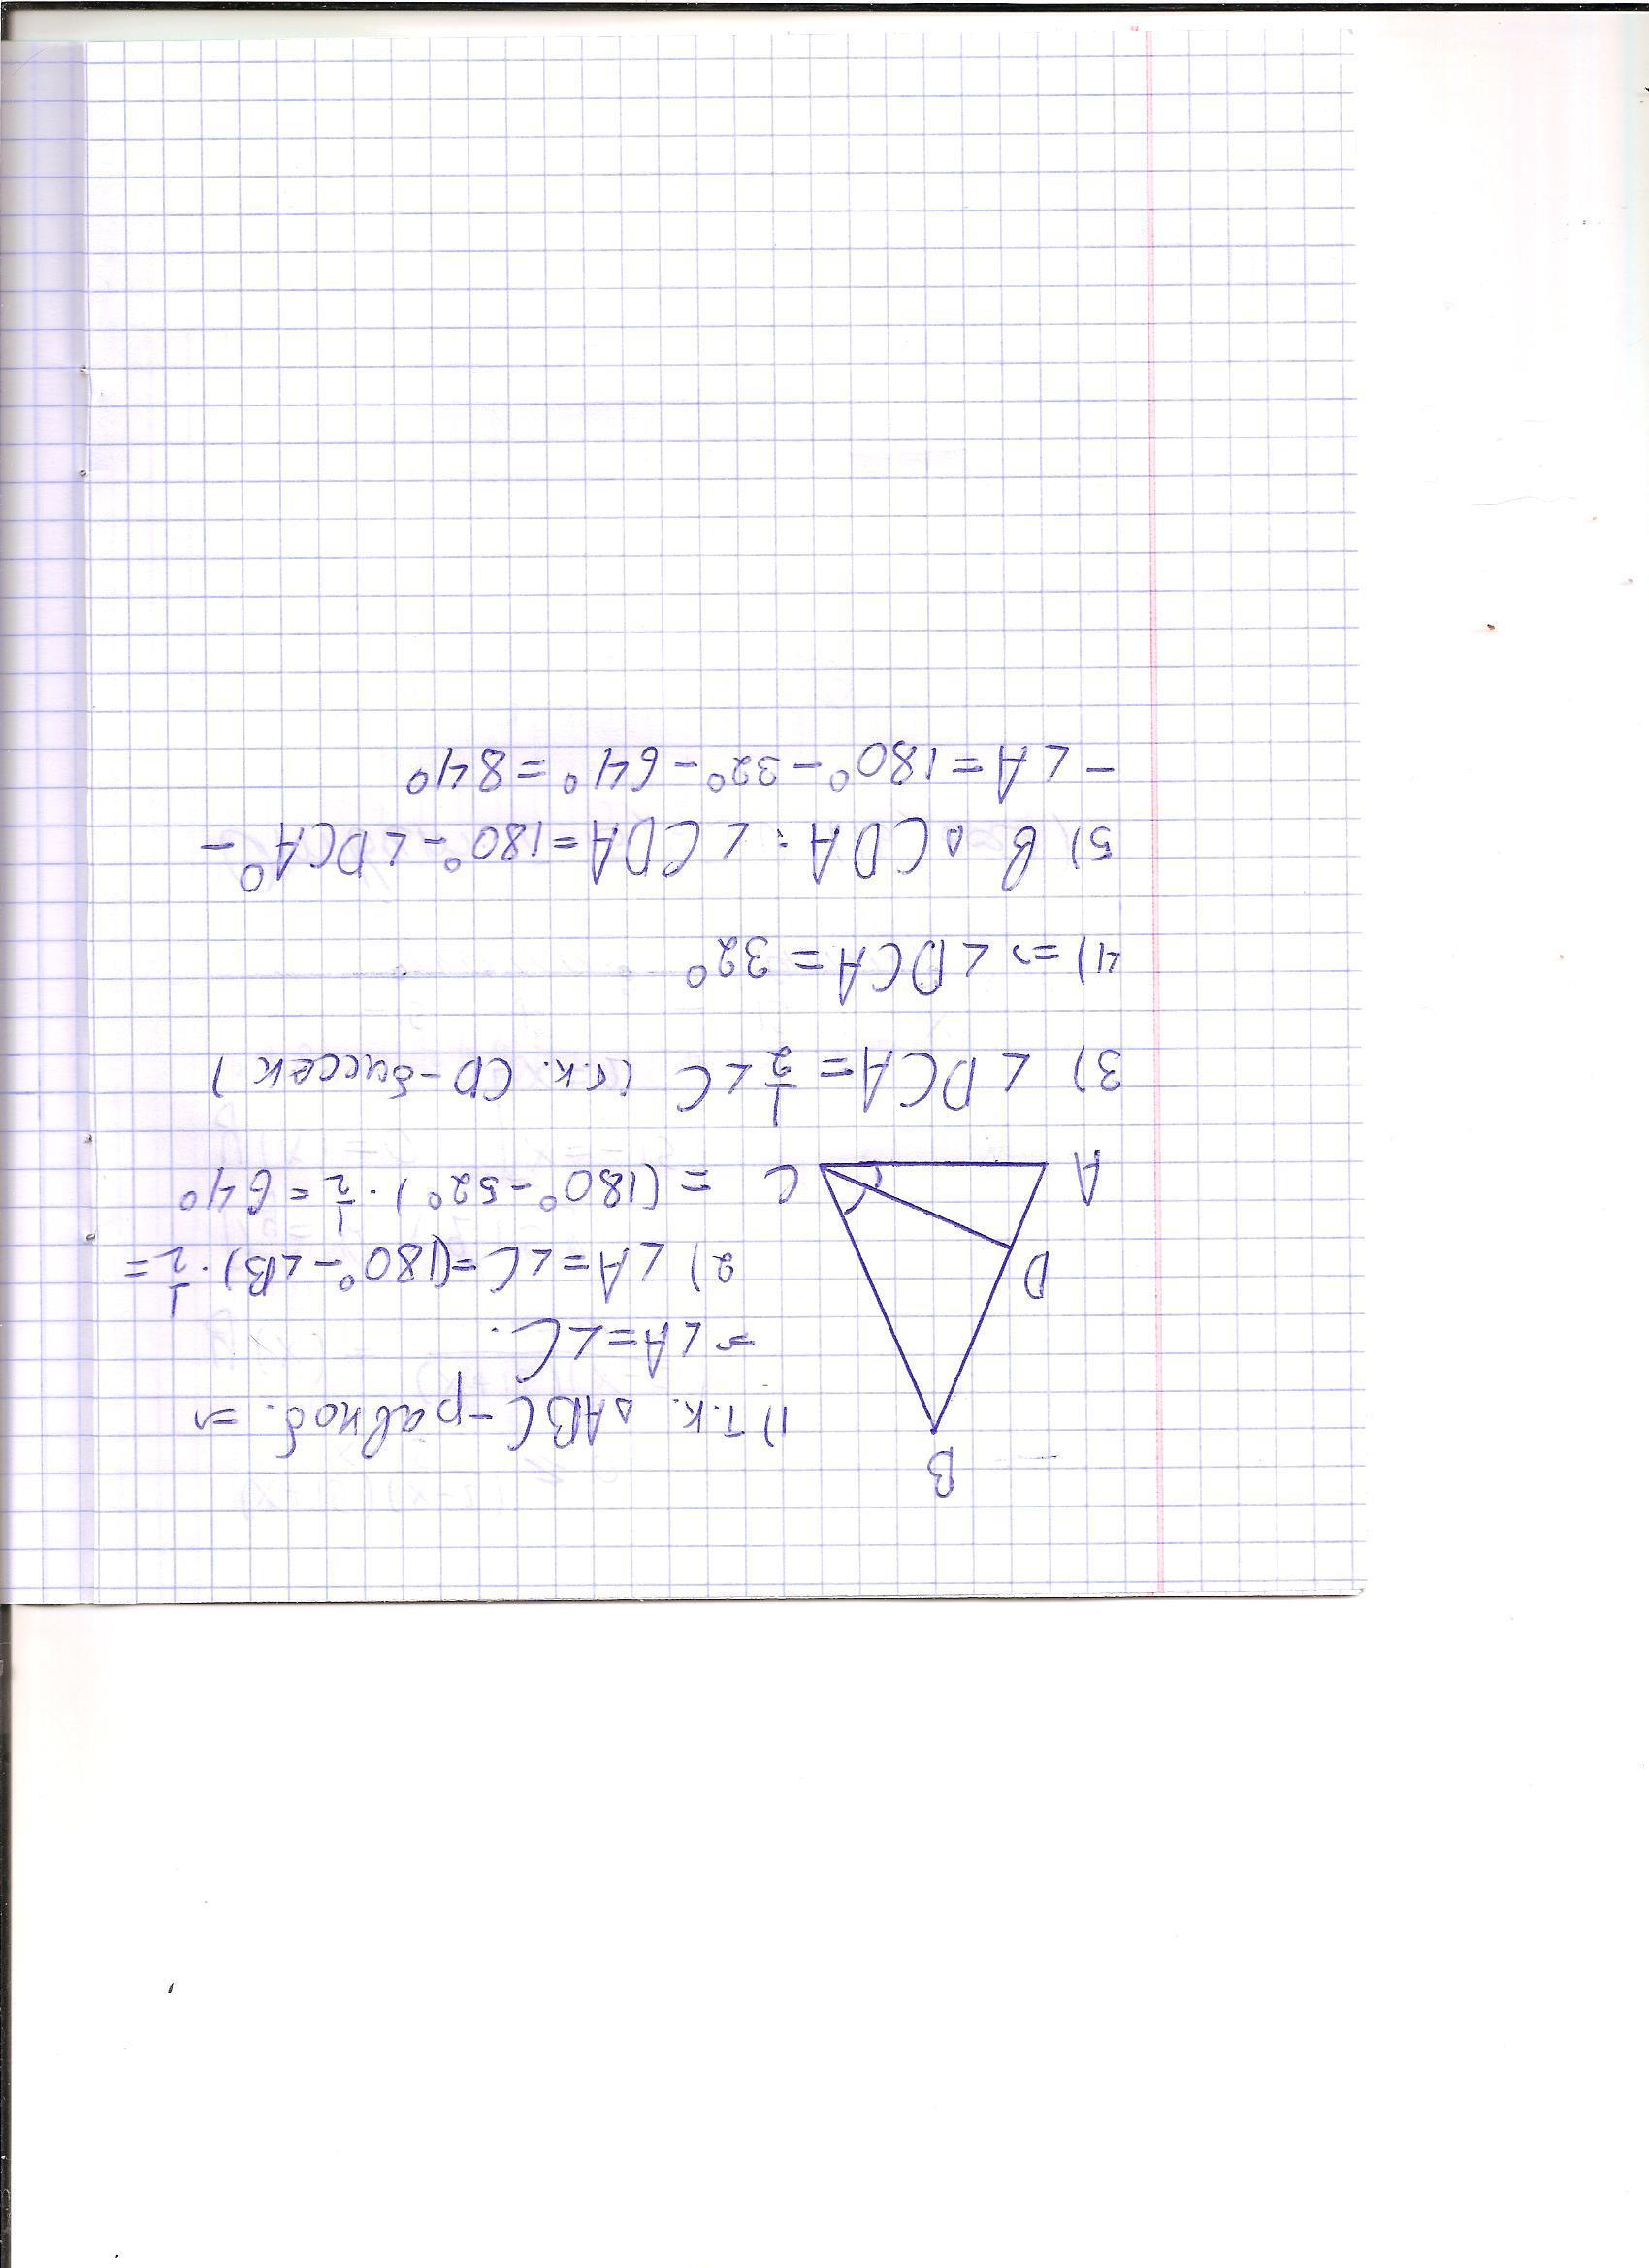 B
1) т.к. △ABC - равноб. ⇒
⇒ ∠A = ∠C.
D
2) ∠A = ∠C = (180° - ∠B) · 1/2 =
A
C
= (180° - 52°) · 1/2 = 64°
3) ∠DCA = 1/2 ∠C (т.к. CD - биссек)
4) ⇒ ∠DCA = 32°
5) В △CDA: ∠CDA = 180° - ∠DCA° -
- ∠A = 180° - 32° - 64° = 84°